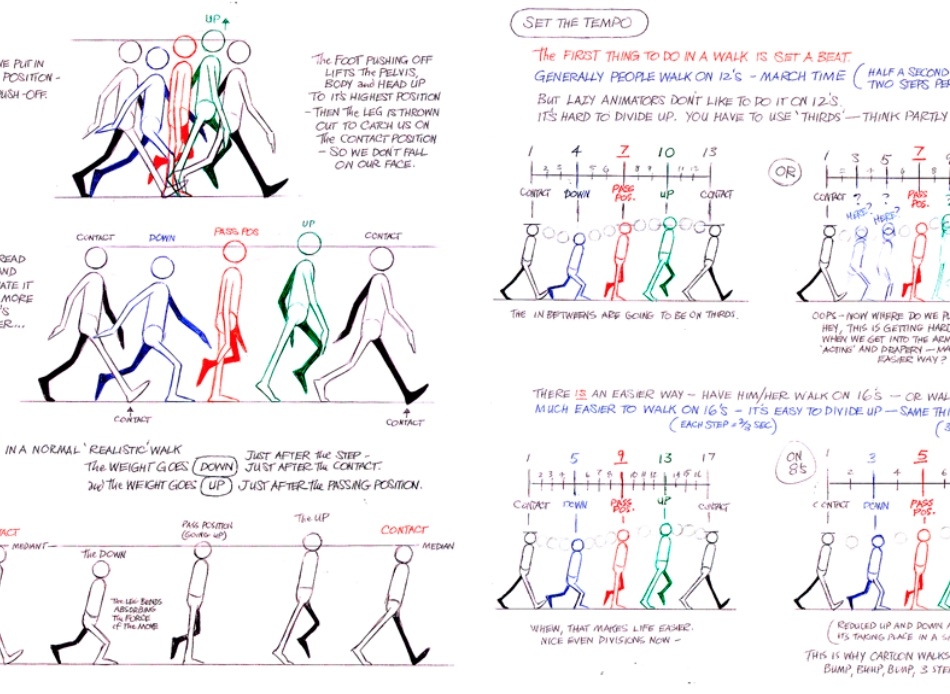 UP
WE PUT IN
POSITION -
PUSH-OFF.
The FOOT PUSHING OFF
LIFTS The PELVIS,
BODY and HEAD UP
TO IT'S HIGHEST POSITION
- THEN The LEG IS THROWN
OUT TO CATCH US ON
The CONTACT POSITION
- SO WE DON'T FALL
ON OUR FACE.
CONTACT DOWN PASS POS UP CONTACT
READ
AND
ATE IT
MORE
'S
ER...
CONTACT
CONTACT
IN A NORMAL 'REALISTIC' WALK
The WEIGHT GOES DOWN JUST AFTER THE STEP - JUST AFTER the CONTACT.
and The WEIGHT GOES UP JUST AFTER The PASSING POSITION.
TACT
MEDIAN
The DOWN
The LEG BENDS
ABSORBING
The FORCE
of The MOVE
PASS POSITION
(GOING UP)
The UP
CONTACT
MEDIAN
SET THE TEMPO
The FIRST THING TO DO IN A WALK IS SET A BEAT.
GENERALLY PEOPLE WALK ON 12'S - MARCH TIME (HALF A SECOND
TWO STEPS PER
BUT LAZY ANIMATORS DON'T LIKE TO DO IT ON 12'S.
IT'S HARD TO DIVIDE UP. YOU HAVE TO USE 'THIRDS' - THINK PARTLY
1 4 7 10 13
2 3 5 6 8 9 11 12
CONTACT DOWN PASS POS. UP CONTACT
THE IN BETWEENS ARE GOING TO BE ON THIRDS.
OR
1 3 5 7 9
CONTACT ? ? PASS POS.
HERE? HERE?
OOPS - NOW WHERE DO WE PU
HEY, THIS IS GETTING HARD
WHEN WE GET INTO THE ARM
'ACTING' AND DRAPERY - MA
EASIER WAY?
THERE IS AN EASIER WAY - HAVE HIM/HER WALK ON 16'S - OR WAL
MUCH EASIER TO WALK ON 16'S - IT'S EASY TO DIVIDE UP - SAME THI
(EACH STEP = 2/3 SEC)
1 5 9 13 17
2 3 4 6 7 8 10 11 12 14 15 16
CONTACT DOWN PASS POS. UP CONTACT
WHEW, THAT MAKES LIFE EASIER.
NICE EVEN DIVISIONS NOW -
ON 8's
1 3 5
2 4 6
CONTACT DOWN PASS POS.
(REDUCED UP AND DOWN A
IT'S TAKING PLACE IN A S
THIS IS WHY CARTOON WALKS
BUMP, BUMP, BUMP, 3 STE